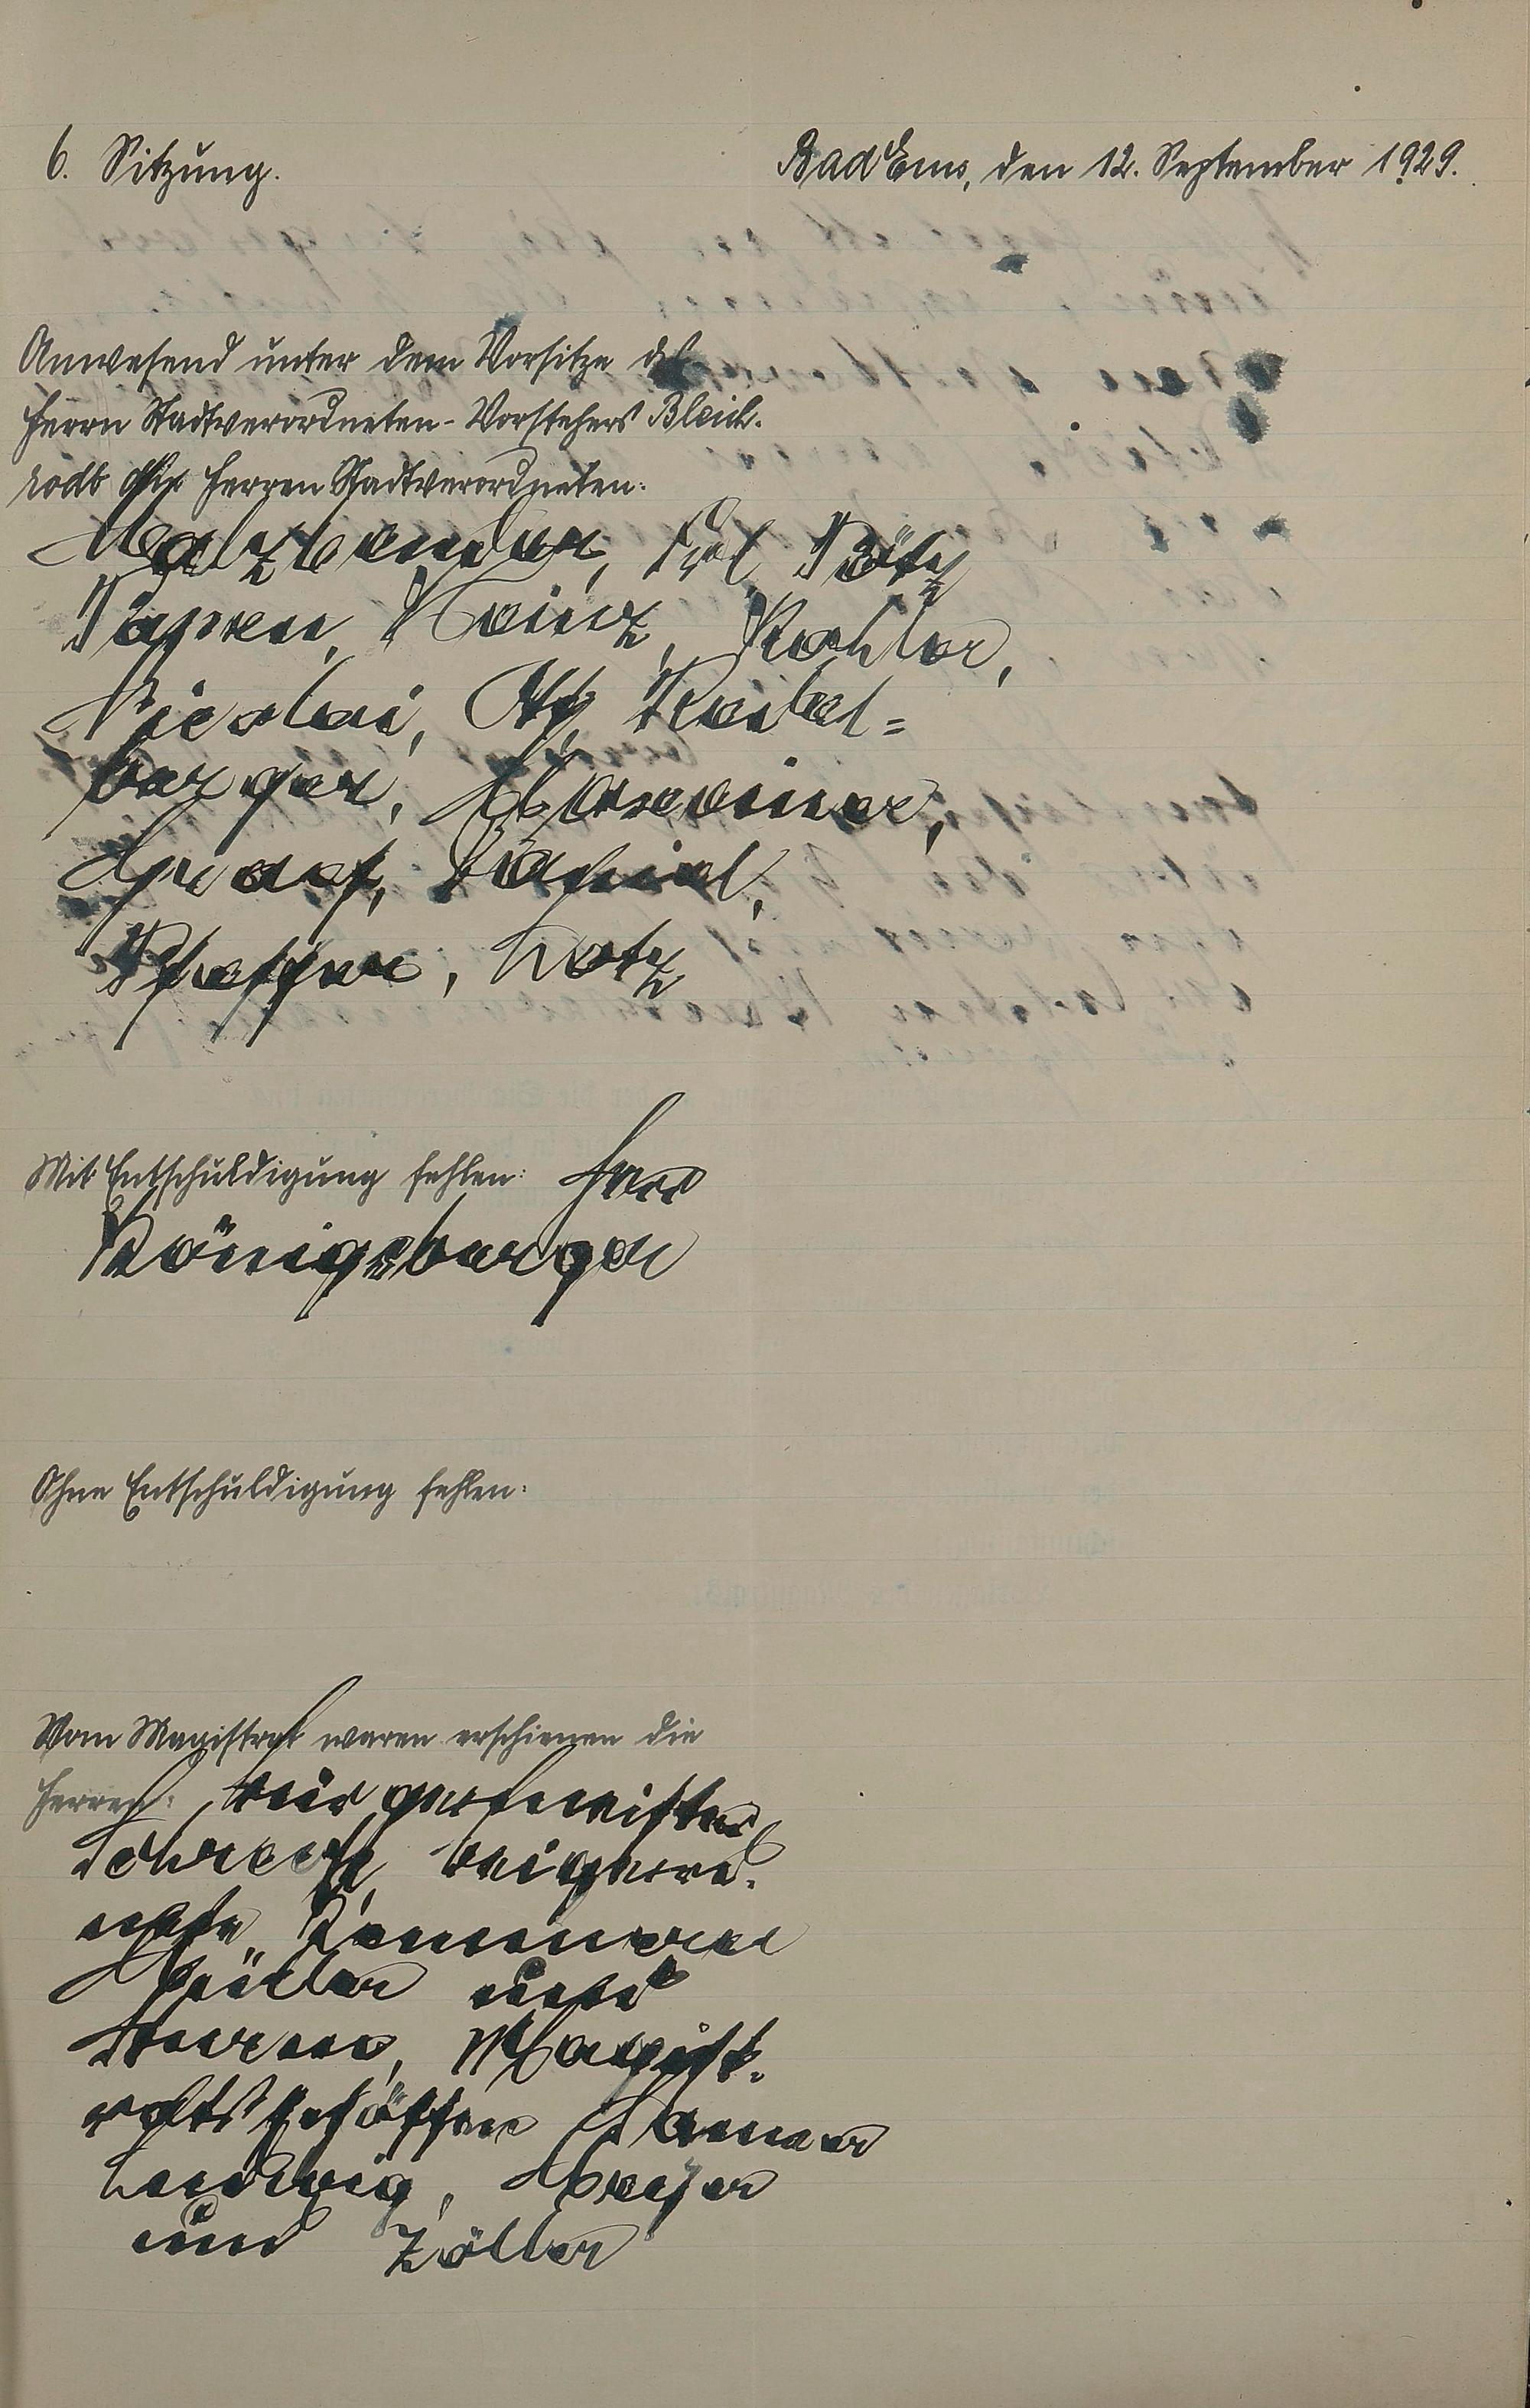 6. Sitzung.
Bad Ems, den 12. September 1929.
Anwesend unter dem Vorsitze des
Herrn Stadtverordneten-Vorstehers Bleich.
rodt die Herren Stadtverordneten:
Frl. Pötz
Kainz, Kohler,
Nicolai, Ott, Reibel=
berger,
Graef,
Pfeffer, Lotz
Mit Entschuldigung fehlen: Herr
Königsberger
Ohne Entschuldigung fehlen:
Vom Magistrat waren erschienen die
Herren: Bürgermeister
Schreck, Beigeord.
nete
Müller und
Magist.
ratsschöffen
Ludwig, Meyer
und Zöller